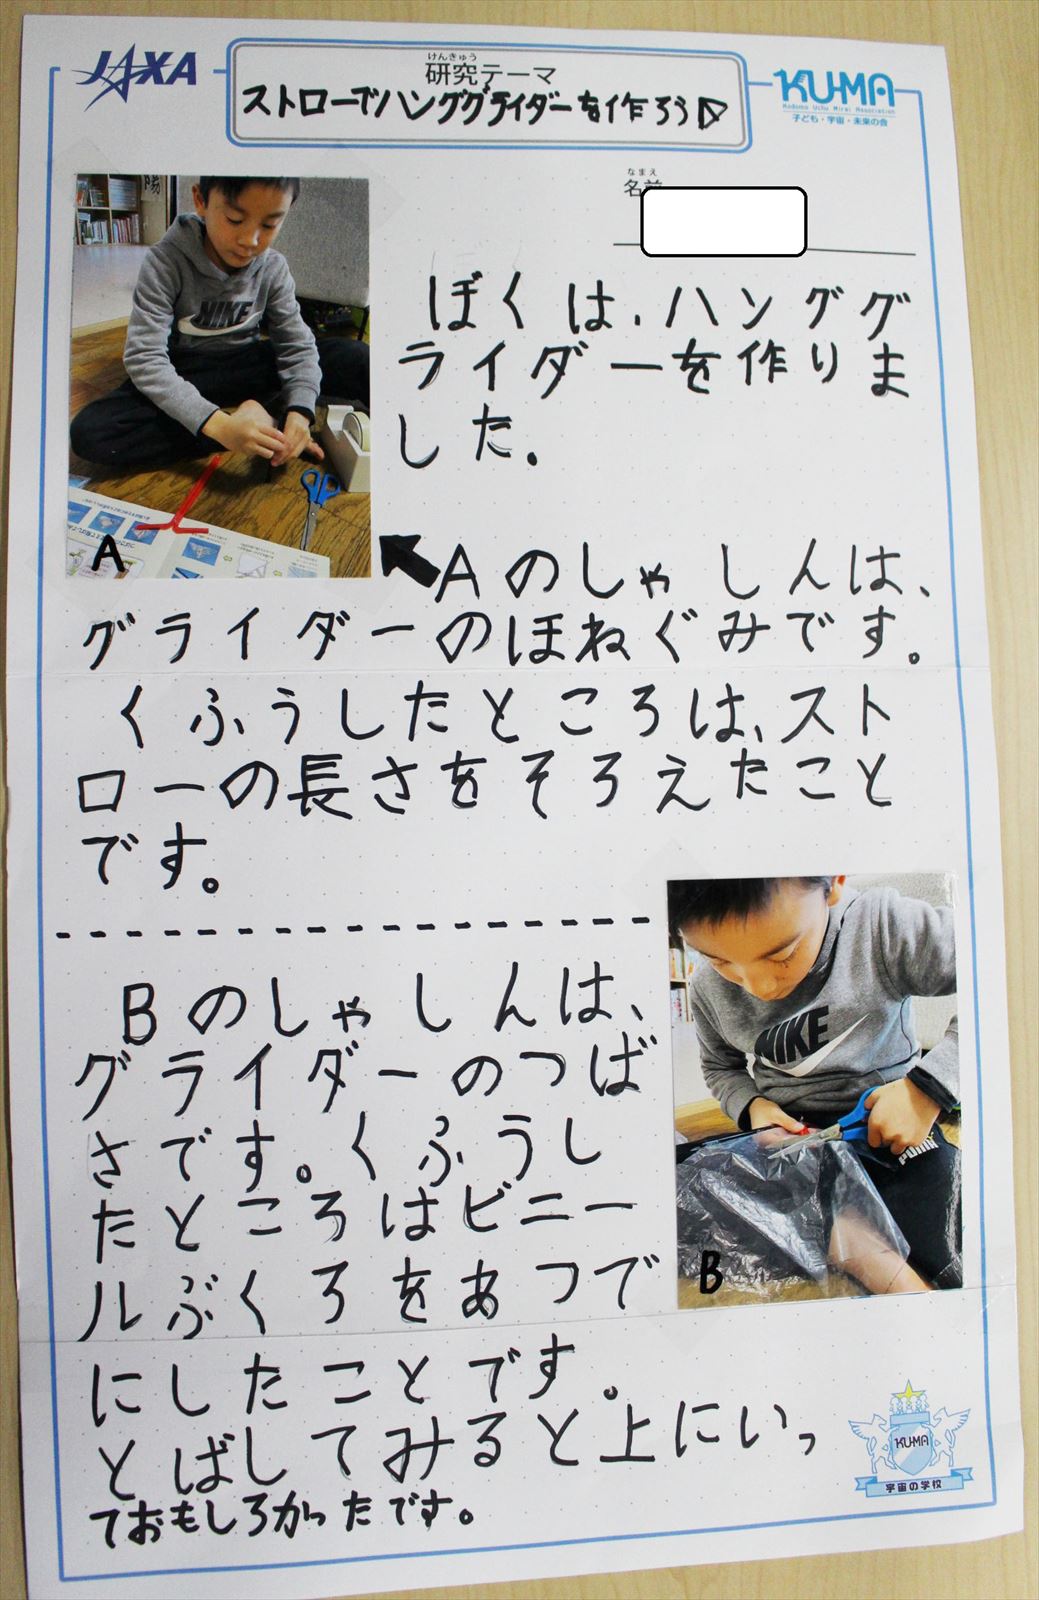 JAXA
けんきゅう
研究テーマ
ストローでハンググライダーを作ろう
KU-MA
Kodomo Uchu Mirai Association
子ども・宇宙・未来の会
なまえ
名前
NIKE
A
ぼくは、ハンググ
ライダーを作りま
した.
Aのしゃしんは、
グライダーのほねぐみです。
くふうしたところは、スト
ローの長さをそろえたこと
です。
Bのしゃしんは、
グライダーのつば
さです。くふうし
たところはビニー
ルぶくろをあつで
にしたことです。
とばしてみると上にいっ
ておもしろかったです。
NIKE
PUMA
B
KU-MA
宇宙の学校